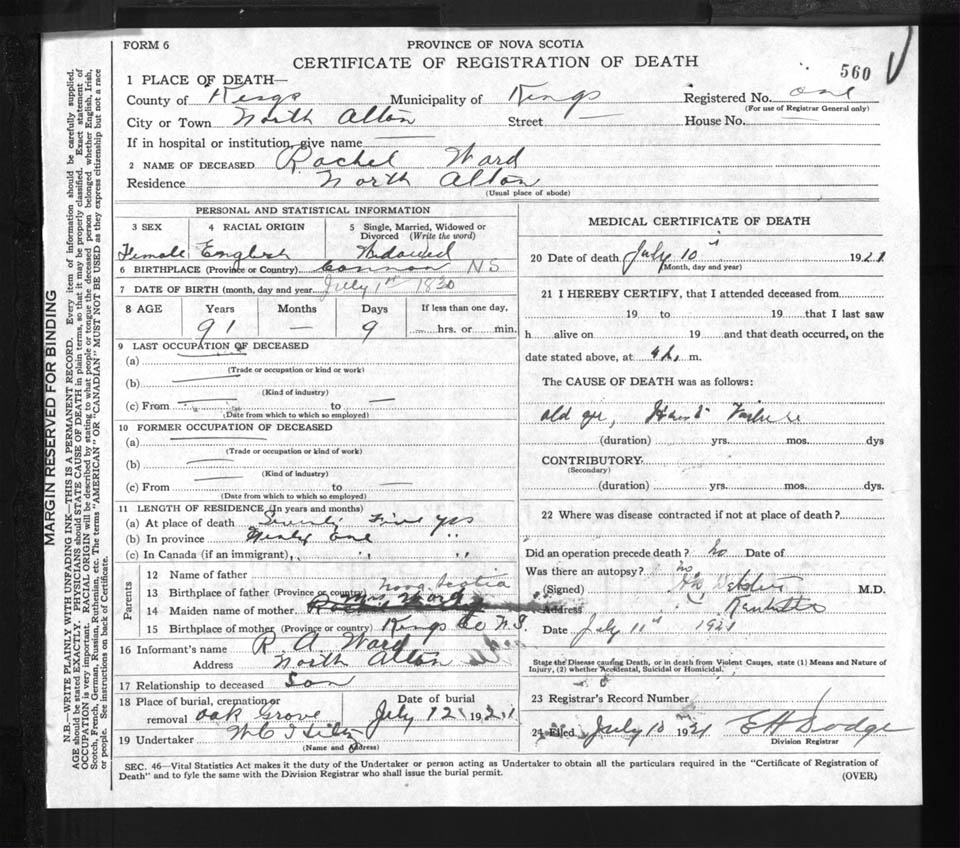 FORM 6
PROVINCE OF NOVA SCOTIA
CERTIFICATE OF REGISTRATION OF DEATH
560
1 PLACE OF DEATH—
County of Kings Municipality of Kings Registered No. one
(For use of Registrar General only)
City or Town North Alton Street — House No.
If in hospital or institution, give name
2 NAME OF DECEASED Rachel Ward
Residence North Alton
(Usual place of abode)
MARGIN RESERVED FOR BINDING
N.B.—WRITE PLAINLY WITH UNFADING INK—THIS IS A PERMANENT RECORD. Every item of information should be carefully supplied.
AGE should be stated EXACTLY. PHYSICIANS should STATE CAUSE OF DEATH in plain terms, so that it may be properly classified. Exact statement of
OCCUPATION is very important. RACIAL ORIGIN will be described by stating to what people or tongue the deceased person belonged whether English, Irish,
Scotch, French, German, Russian, Ruthenian, etc. The terms "AMERICAN" OR "CANADIAN" MUST NOT BE USED as they express citizenship but not a race
or people. See instructions on back of Certificate.
PERSONAL AND STATISTICAL INFORMATION
3 SEX 4 RACIAL ORIGIN 5 Single, Married, Widowed or
Divorced (Write the word)
Female English Widowed
6 BIRTHPLACE (Province or Country) NS
7 DATE OF BIRTH (month, day and year) July 1st 1830
8 AGE Years Months Days If less than one day,
91 — 9 hrs. or min.
9 LAST OCCUPATION OF DECEASED
(a)
(Trade or occupation or kind or work)
(b)
(Kind of industry)
(c) From to —
(Date from which to which so employed)
10 FORMER OCCUPATION OF DECEASED
(a)
(Trade or occupation or kind of work)
(b)
(Kind of industry)
(c) From — to —
(Date from which to which so employed)
11 LENGTH OF RESIDENCE (In years and months)
(a) At place of death Seventy Five yrs
(b) In province Ninety One "
(c) In Canada (if an immigrant) " "
Parents
12 Name of father
13 Birthplace of father (Province or country) Nova Scotia
14 Maiden name of mother Mrs Ward
15 Birthplace of mother (Province or country) Kings Co N.S.
16 Informant's name R. A. Ward
Address North Alton
17 Relationship to deceased Son
18 Place of burial, cremation or
removal Oak Grove
Date of burial
July 12 1921
19 Undertaker
(Name and address)
MEDICAL CERTIFICATE OF DEATH
20 Date of death July 10 1921
(Month, day and year)
21 I HEREBY CERTIFY, that I attended deceased from
19 to 19 that I last saw
h alive on 19 and that death occurred, on the
date stated above, at m.
The CAUSE OF DEATH was as follows:
old age, Heart Failure
(duration) yrs. mos. dys
CONTRIBUTORY
(Secondary)
(duration) yrs. mos. dys.
22 Where was disease contracted if not at place of death?
Did an operation precede death? No Date of
Was there an autopsy? no
(Signed) Webster M.D.
Address Kentville
Date July 11th 1921
State the Disease causing Death, or in death from Violent Causes, state (1) Means and Nature of
Injury, (2) whether Accidental, Suicidal or Homicidal.
23 Registrar's Record Number
24 Filed July 1921 E H Dodge
Division Registrar
SEC. 46—Vital Statistics Act makes it the duty of the Undertaker or person acting as Undertaker to obtain all the particulars required in the "Certificate of Registration of
Death" and to fyle the same with the Division Registrar who shall issue the burial permit.
(OVER)